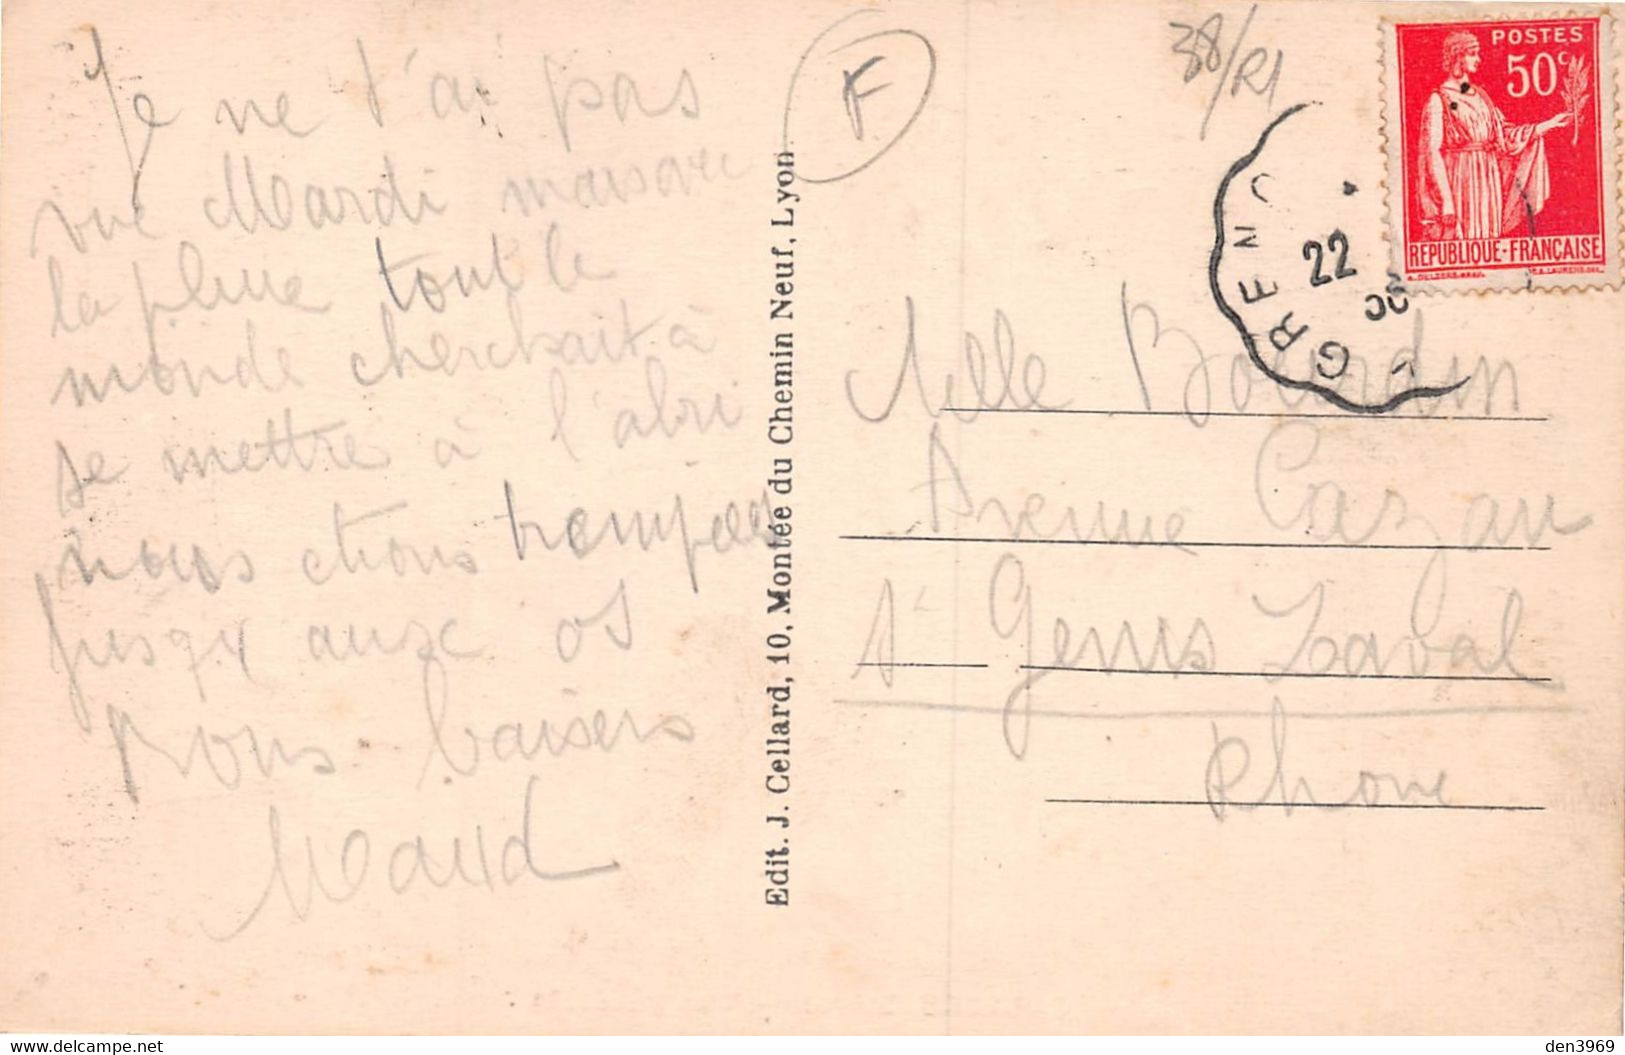 Je ne t'ai pas
vue Mardi mais avec
la pluie tout le
monde cherchait à
se mettre à l'abri
nous étions trempées
jusqu'aux os
Bons baisers
Maud
Edit. J. Cellard, 10, Montée du Chemin Neuf, Lyon
F
38/R1
POSTES
50c
REPUBLIQUE-FRANÇAISE
GREN
22
Melle Bourdin
Avenue Cazau
St Genis Laval
Rhone
den3969
www.delcampe.net